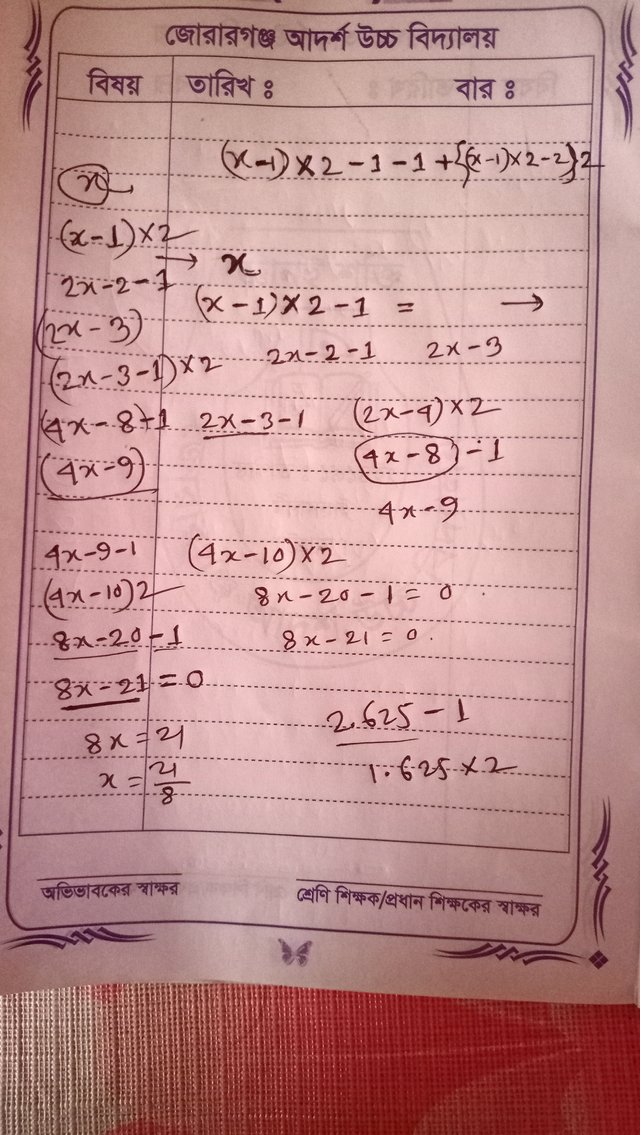 জোরারগঞ্জ আদর্শ উচ্চ বিদ্যালয়
বিষয় তারিখ ঃ বার ঃ
(x-1)×2-1-1+{(x-1)×2-2}2
x
(x-1)×2
→ x
2x-2-1
(x-1)×2-1 = →
(2x-3)
2x-2-1 2x-3
(2x-3-1)×2
(4x-8)-1 2x-3-1 (2x-4)×2
(4x-9) (4x-8)-1
4x-9
4x-9-1 (4x-10)×2
(4x-10)2 8x-20-1=0
8x-20-1 8x-21=0.
8x-21=0
2.625-1
8x=21
1.625×2
x=21/8
অভিভাবকের স্বাক্ষর শ্রেণি শিক্ষক/প্রধান শিক্ষকের স্বাক্ষর